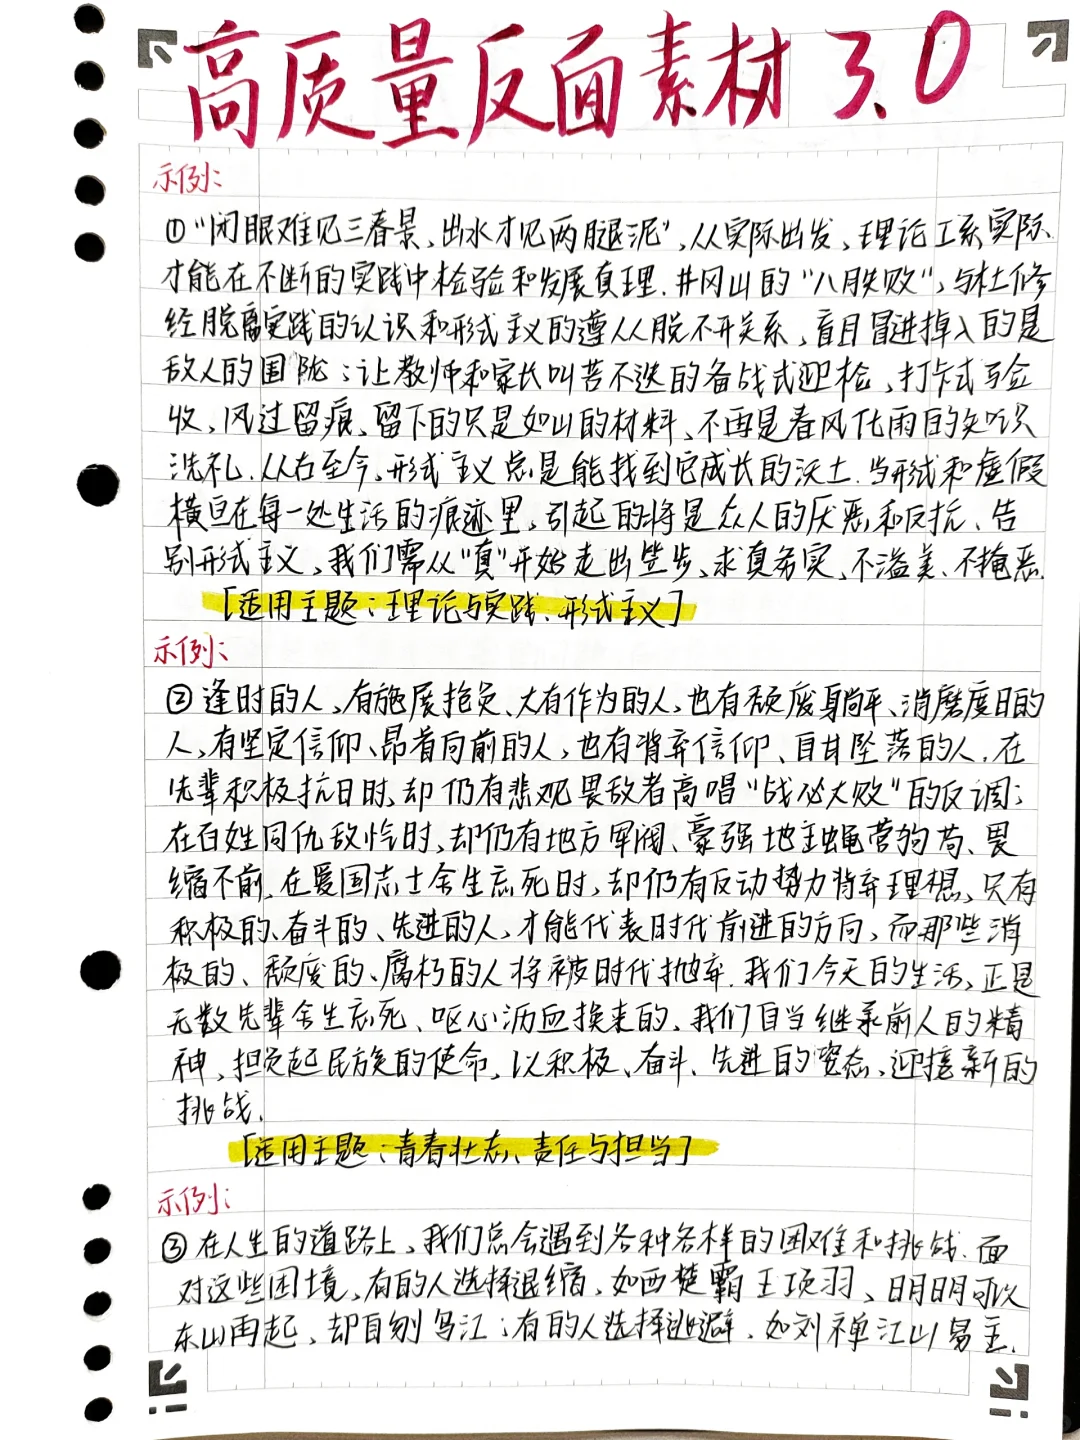 高质量反面素材 3.0
示例:
①"闭眼难见三春景,出水才见两腿泥",从实际出发,理论联系实际,
才能在不断的实践中检验和发展真理.井冈山的"八月失败",与杜修
经脱离实践的认识和形式主义的遵从脱不开关系,盲目冒进掉入的是
敌人的圈陇;让教师和家长叫苦不迭的备战式迎检,打卡式验
收,风过留痕,留下的只是如山的材料,不再是春风化雨的知识
洗礼.从古至今,形式主义总是能找到它成长的沃土.当形式和虚假
横亘在每一处生活的痕迹里,引起的将是众人的厌恶和反抗、告
别形式主义,我们需从"真"开始走出些步,求真务实,不溢美、不掩恶.
[适用主题:理论与实践、形式主义]
示例:
②逢时的人,有施展抱负、大有作为的人,也有颓废躺平、消磨度日的
人,有坚定信仰、昂首向前的人,也有背弃信仰、自甘坠落的人.在
先辈积极抗日时,却仍有悲观畏敌者高唱"战必大败"的反调;
在百姓同仇敌忾时,却仍有地方军阀、豪强地主蝇营狗苟、畏
缩不前.在爱国志士舍生忘死时,却仍有反动势力背弃理想,只有
积极的、奋斗的、先进的人,才能代表时代前进的方向,而那些消
极的、颓废的、腐朽的人将被时代抛弃.我们今天的生活,正是
无数先辈舍生忘死、呕心沥血换来的,我们自当继承前人的精
神,担负起民族的使命,以积极、奋斗、先进的姿态,迎接新的
挑战.
[适用主题:青春壮志、责任与担当]
示例:
③在人生的道路上,我们总会遇到各种各样的困难和挑战.面
对这些困境,有的人选择退缩,如西楚霸王项羽,明明可以
东山再起,却自刎乌江;有的人选择逃避,如刘禅江山易主.